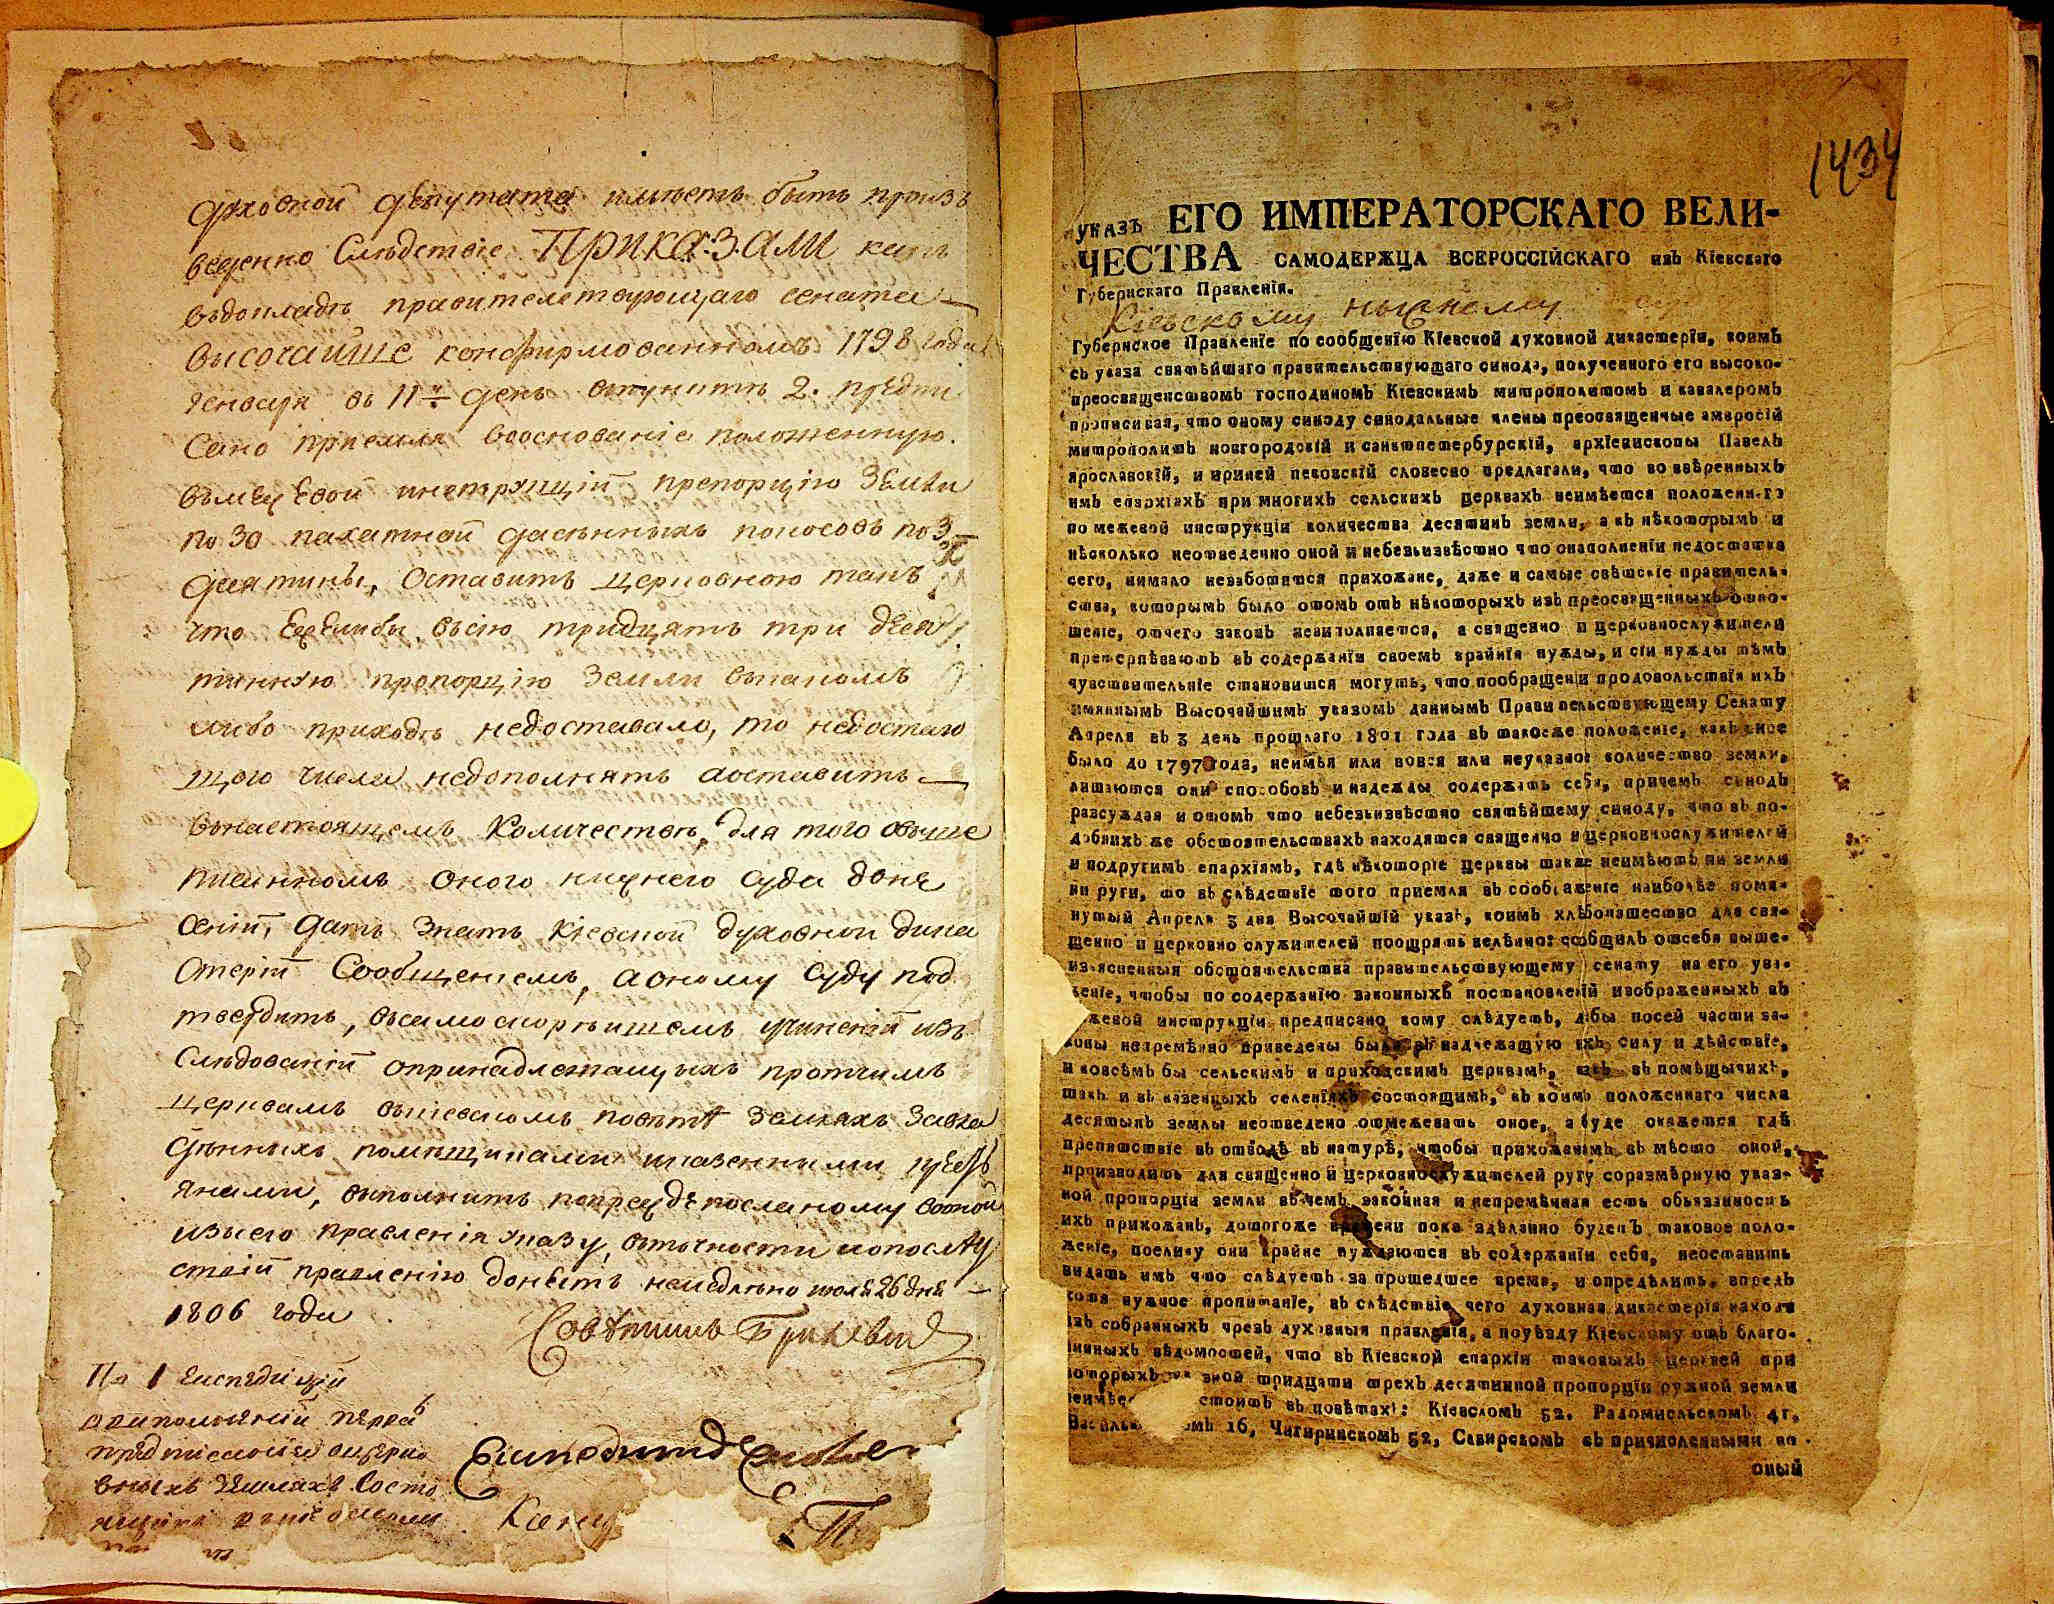 духовной депутата имѣетъ быть произ
ведено Слѣдствіе ПРИКАЗАЛИ какъ
въдокладѣ правителствующаго сената
высочайше конфирмованномъ 1798 года
генваря въ 11 й день впунктѣ 2. предпи
сано приемля воснованіе положенную
въмежевой инструкціи препорцію Земли
по 30 пахатной да сѣнныхъ покосовъ по 3
десятины, Оставить церковною такъ
что Ежелибы въсію тридцять три деся
тинную пропорцію Земли вкакомъ
либо приходѣ недоставало, то недостаю
щого числа недополнять аоставить
внастоящемъ Количествѣ, для того овыше
писанномъ оного нижнего суда доне
сеніи, дать знать Кіевской духовной дика
стеріи Сообщеніемъ, аоному суду под
твердить, осамоскорѣйшемъ учиненіи изъ
Слѣдованій опринадлежащихъ протчимъ
церквамъ вкіевскомъ повѣтѣ Земляхъ Завла
дѣнныхъ помещиками иказенними креть
янами, выполнить попреждепосланому воной
изъсего правленія указу, въточности ипослѣд
ствіи правленію донѣсть немедлѣнно июля 26 дня
1806 года
Совѣтникъ
По 1 Експедиціи
предписаніи оцерко
вныхъ Земляхъ Состо
1434
указъ ЕГО ИМПЕРАТОРСКАГО ВЕЛИ-
ЧЕСТВА САМОДЕРЖЦА ВСЕРОССІЙСКАГО изъ Кіевскаго
Губернскаго Правленія.
Кіевскому нижнему суду
Губернское Правленіе по сообщенію Кіевской духовной дикастеріи, коимъ
съ указа святѣйшаго правительствующаго синода, полученного его высоко-
преосвященствомъ господиномъ Кіевскимъ митрополитомъ и кавалеромъ
прописивая, что оному синоду синодальные члены преосвященные амвросій
митрополитъ новгородскій и санктпетербурскій, архіепископы Павелъ
ярославскій, и ириней псковскій словесно предлагали, что во ввѣренныхъ
имъ епархіяхъ при многихъ сельскихъ церквахъ неимѣется положенн-го
по межевой инструкціи количества десятинъ земли, а къ нѣкоторымъ и
нѣсколько неотведенно оной и небезъизвѣстно что онаполненіи недостатка
сего, нимало незаботятся прихожане, даже и самые свѣтскіе правитель-
ства, которымъ было отомъ отъ нѣкоторыхъ изъ преосвященныхъ отно-
шеніе, отчего законъ невиполняется, а священно и церковнослужители
претерпѣваютъ въ содержаніи своемъ крайнія нужды, и сіи нужды тѣмъ
чувствительніе становится могутъ, что пообращеніи продовольствія ихъ
имяннымъ Высочайшимъ указомъ даннымъ Правительствующему Сенату
Апреля въ 3 день прошлаго 1801 года въ такоеже положеніе, какъ оное
было до 1797 года, неимѣя или вовся или неуказное количество земли,
лишаются они способовъ и надежды содержать себя, причемъ синодъ
разсуждая и отомъ что небезъизвѣстно святѣйшему синоду, что въ по-
добнихъ же обстоятельствахъ находятся священно и церковнослужителей
и подругимъ епархіямъ, гдѣ нѣкоторіе церквы также неимѣютъ ни земли
ни руги, то въ слѣдствіе того приемля въ соображеніе наиболѣе помя-
нутый Апреля 3 дня Высочайшій указъ, коимъ хлѣбопашество для свя-
щенно и церковно служителей поощрять велѣнно: сообщилъ отсебя выше-
изъясненныя обстоятельства правительствующему сенату на его ува-
женіе, чтобы по содержанію законныхъ постановленій изображенныхъ въ
межевой инструкціи предписано кому слѣдуетъ, дабы посей части за-
коны непремѣнно приведены были въ надлежащую ихъ силу и дѣйствіе,
и ковсѣмъ бы сельскимъ и приходскимъ церквамъ, какъ въ помѣщичихъ,
такъ и въ казенныхъ селеніяхъ состоящимъ, къ коимъ положеннаго числа
десятынъ землы неотведено отмежевать оное, а буде окажется гдѣ
препятствіе въ отводѣ въ натурѣ, чтобы прихожанамъ въ мѣсто оной,
производить для священно и церковнослужителей ругу соразмѣрную указ-
ной пропорціи земли въ чемъ законная и непремѣнная есть обьязанность
ихъ прихожанъ, дотогоже времени пока здѣланно будетъ таковое поло-
женіе, поелику они крайне нуждаются въ содержаніи себя, неоставить
видать имъ что слѣдуетъ за прошедшее время, и опредѣлить, впредь
хотя нужное пропитаніе, въ слѣдствіе чего духовная дикастерія находя
изъ собранныхъ чрезъ духовныя правленія, а поуѣзду Кіевскому отъ благо-
чинныхъ вѣдомостей, что въ Кіевской епархіи таковыхъ церквей при
которыхъ указной тридцати трехъ десятинной пропорціи ружной земли
неимѣется состоитъ въ повѣтахъ: Кіевскомъ 52, Радомисльскомъ 41,
Васильковскомъ 16, Чигиринскомъ 52, Сквирскомъ съ причисленными во
оный